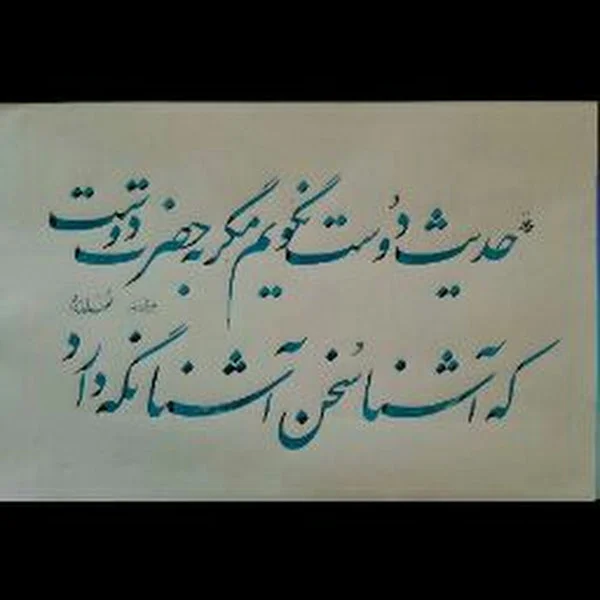 حدیث دوست نگویم مگر به حضرت دوست
که آشنا سخن آشنا نگه دارد